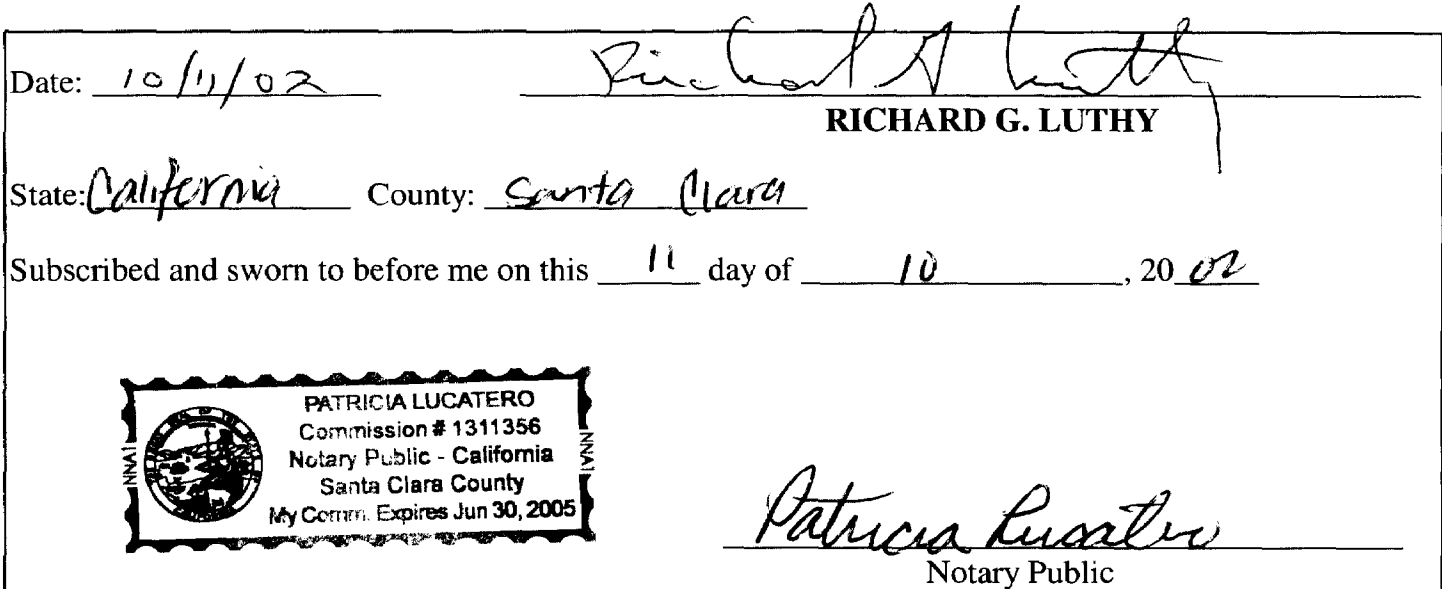 Date: 10/11/02 Richard G Luthy
RICHARD G. LUTHY
State: California County: Santa Clara
Subscribed and sworn to before me on this 11 day of 10, 20 02
PATRICIA LUCATERO
Commission # 1311356
Notary Public - California
Santa Clara County
My Comm. Expires Jun 30, 2005
NNA1
NNA1
Patricia Lucatero
Notary Public